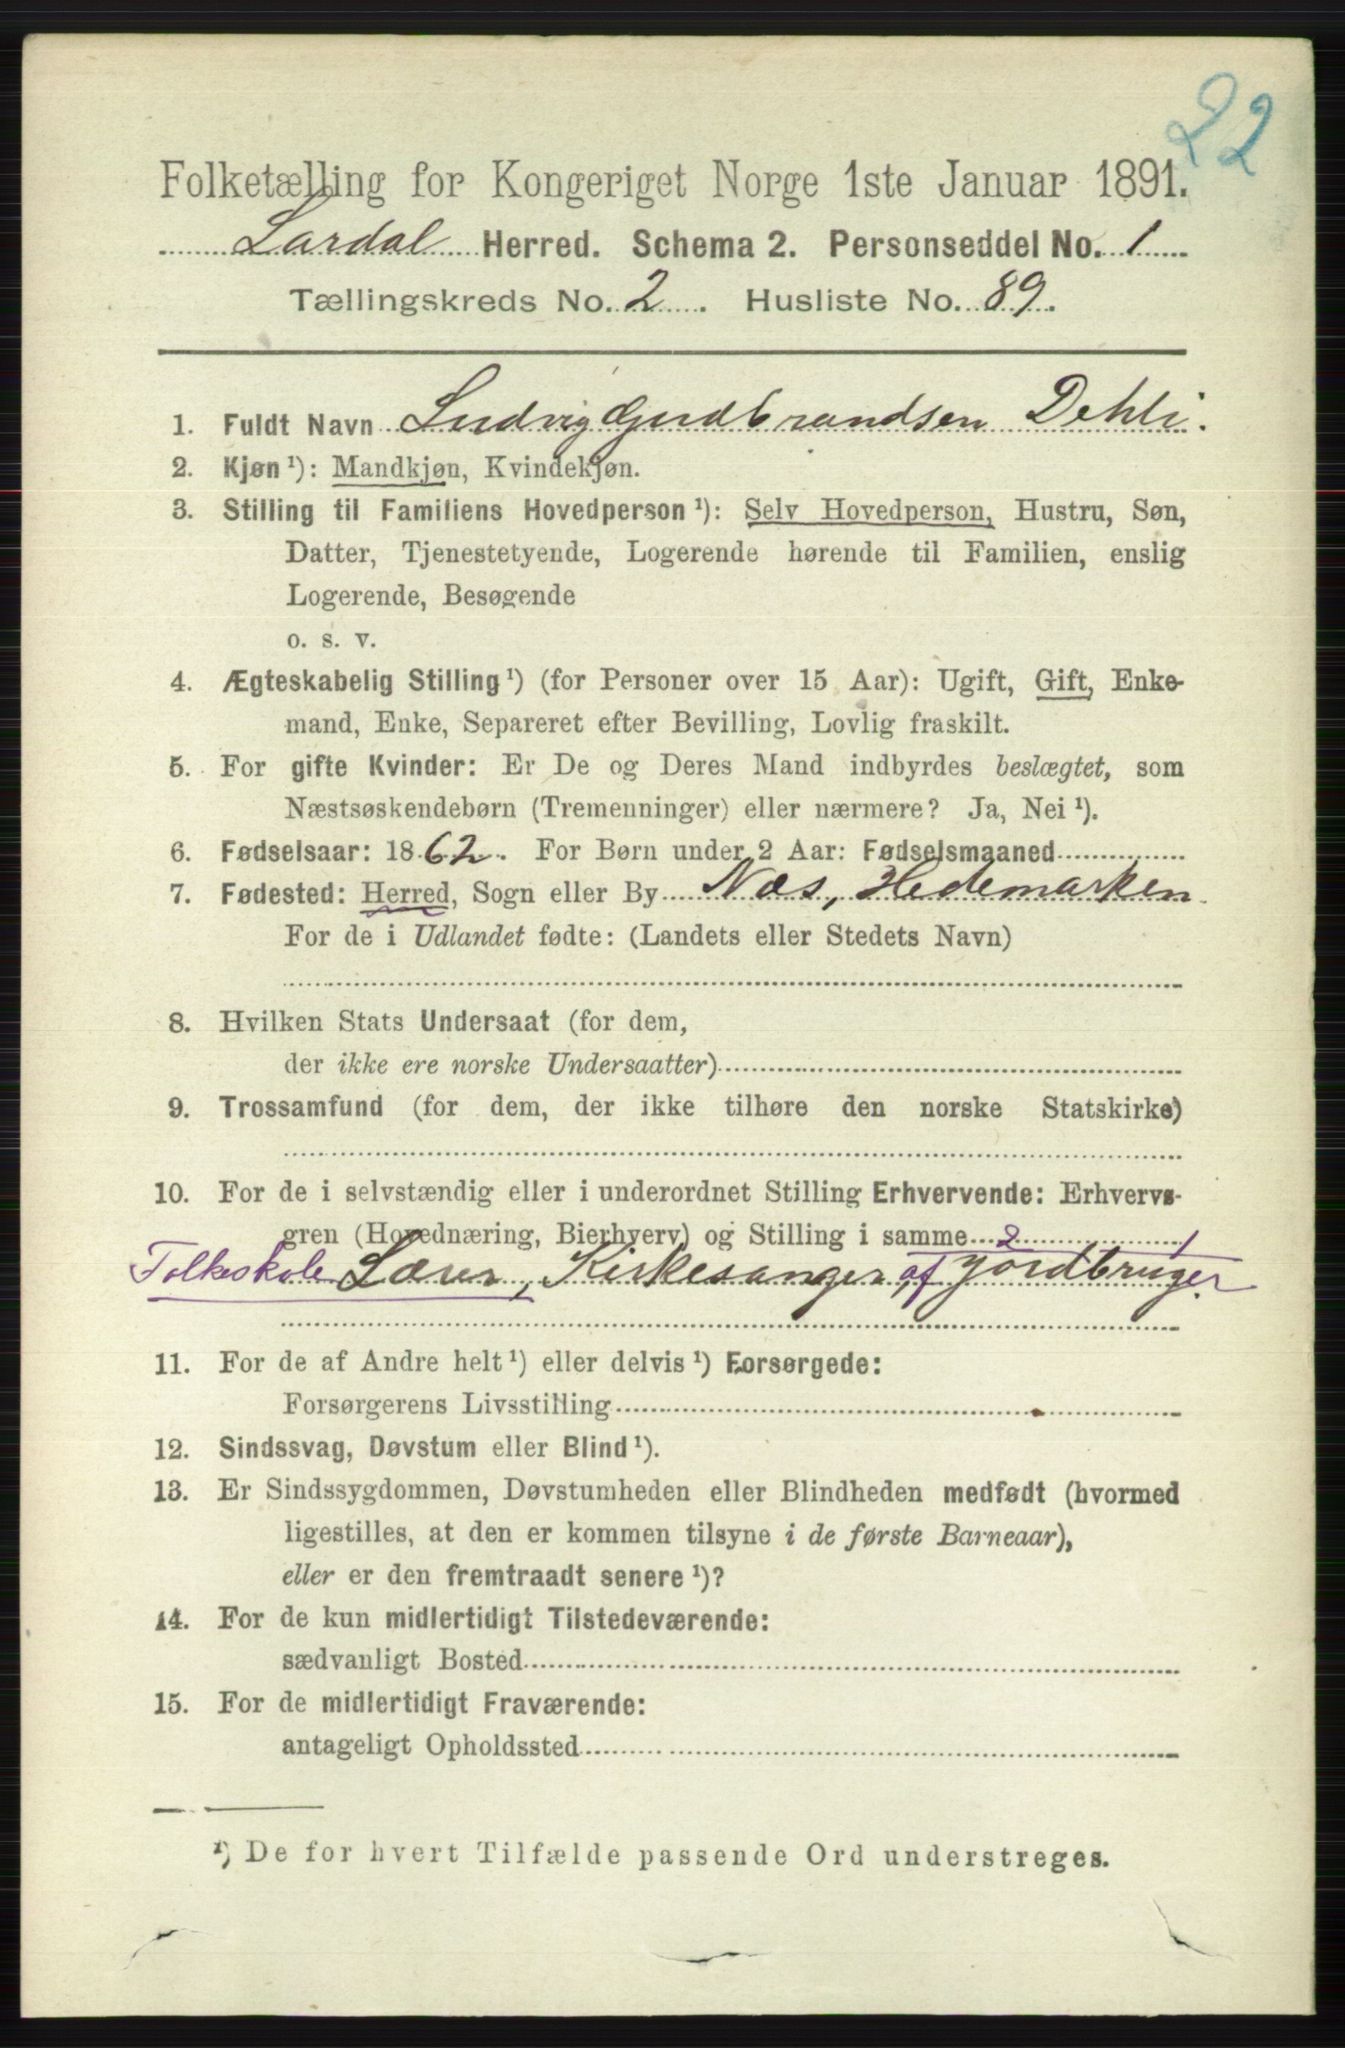 22
Folketælling for Kongeriget Norge 1ste Januar 1891.
Lardal Herred. Schema 2. Personseddel No. 1
Tællingskreds No. 2. Husliste No. 89.
1. Fuldt Navn Ludvig Gudbrandsen Dehli.
2. Kjøn¹): Mandkjøn, Kvindekjøn.
3. Stilling til Familiens Hovedperson¹): Selv Hovedperson, Hustru, Søn,
Datter, Tjenestetyende, Logerende hørende til Familien, enslig
Logerende, Besøgende
o. s. v.
4. Ægteskabelig Stilling¹) (for Personer over 15 Aar): Ugift, Gift, Enke-
mand, Enke, Separeret efter Bevilling, Lovlig fraskilt.
5. For gifte Kvinder: Er De og Deres Mand indbyrdes beslægtet, som
Næstsøskendebørn (Tremenninger) eller nærmere? Ja, Nei¹).
6. Fødselsaar: 1862. For Børn under 2 Aar: Fødselsmaaned
7. Fødested: Herred, Sogn eller By Næs, Hedemarken
For de i Udlandet fødte: (Landets eller Stedets Navn)
8. Hvilken Stats Undersaat (for dem,
der ikke ere norske Undersaatter)
9. Trossamfund (for dem, der ikke tilhøre den norske Statskirke)
10. For de i selvstændig eller i underordnet Stilling Erhvervende: Erhvervs-
gren (Hovednæring, Bierhverv) og Stilling i samme 2 1
Folkeskole Lærer, Kirkesanger, af Jordbruger
11. For de af Andre helt¹) eller delvis¹) Forsørgede:
Forsørgerens Livsstilling
12. Sindssvag, Døvstum eller Blind¹).
13. Er Sindssygdommen, Døvstumheden eller Blindheden medfødt (hvormed
ligestilles, at den er kommen tilsyne i de første Barneaar),
eller er den fremtraadt senere¹)?
14. For de kun midlertidigt Tilstedeværende:
sædvanligt Bosted
15. For de midlertidigt Fraværende:
antageligt Opholdssted
¹) De for hvert Tilfælde passende Ord understreges.